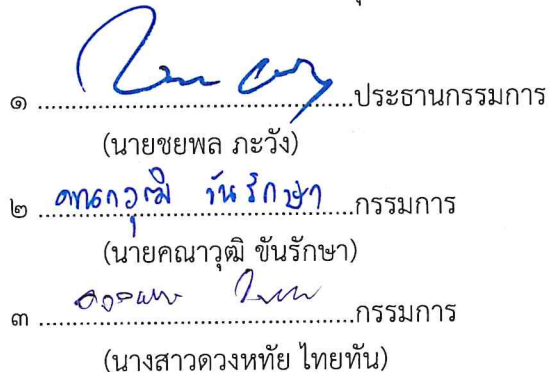 ๑ ..................................................ประธานกรรมการ
(นายชยพล ภะวัง)
๒ คณาวุฒิ ขันรักษา กรรมการ
(นายคณาวุฒิ ขันรักษา)
๓ ..................................................กรรมการ
(นางสาวดวงหทัย ไทยทัน)